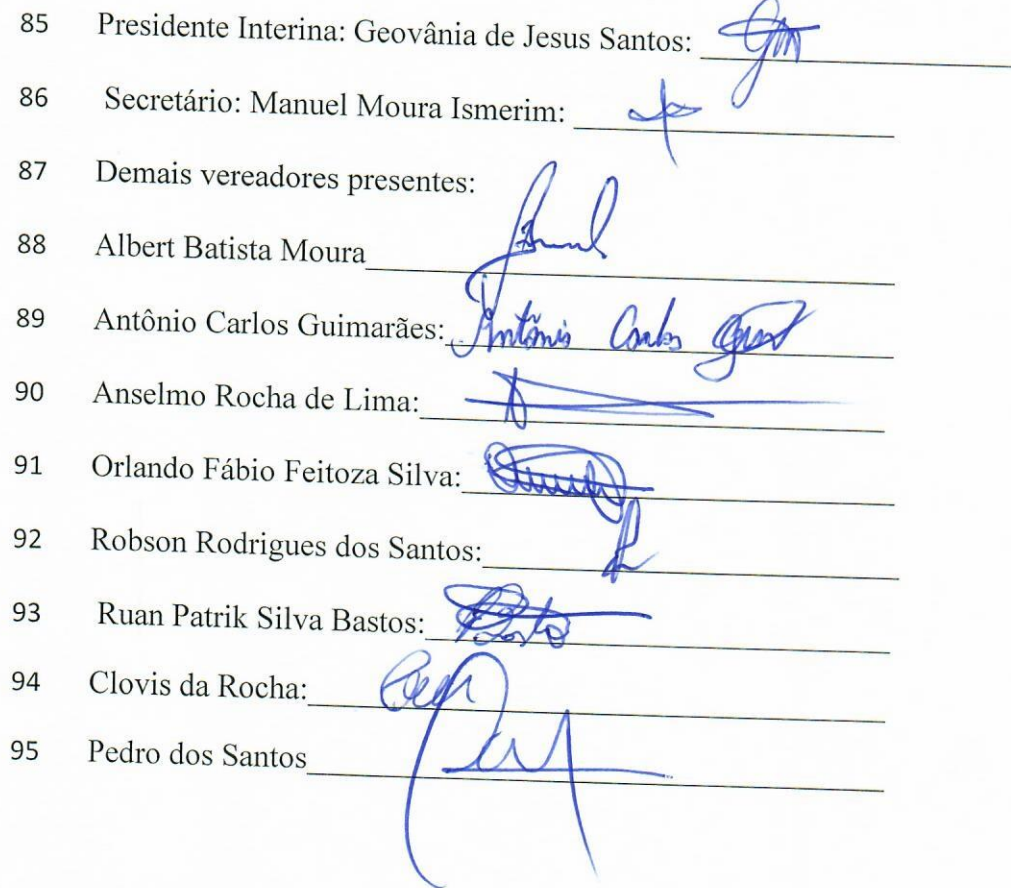 85 Presidente Interina: Geovânia de Jesus Santos:
86 Secretário: Manuel Moura Ismerim:
87 Demais vereadores presentes:
88 Albert Batista Moura
89 Antônio Carlos Guimarães: Antônio Carlos
90 Anselmo Rocha de Lima:
91 Orlando Fábio Feitoza Silva:
92 Robson Rodrigues dos Santos:
93 Ruan Patrik Silva Bastos:
94 Clovis da Rocha:
95 Pedro dos Santos